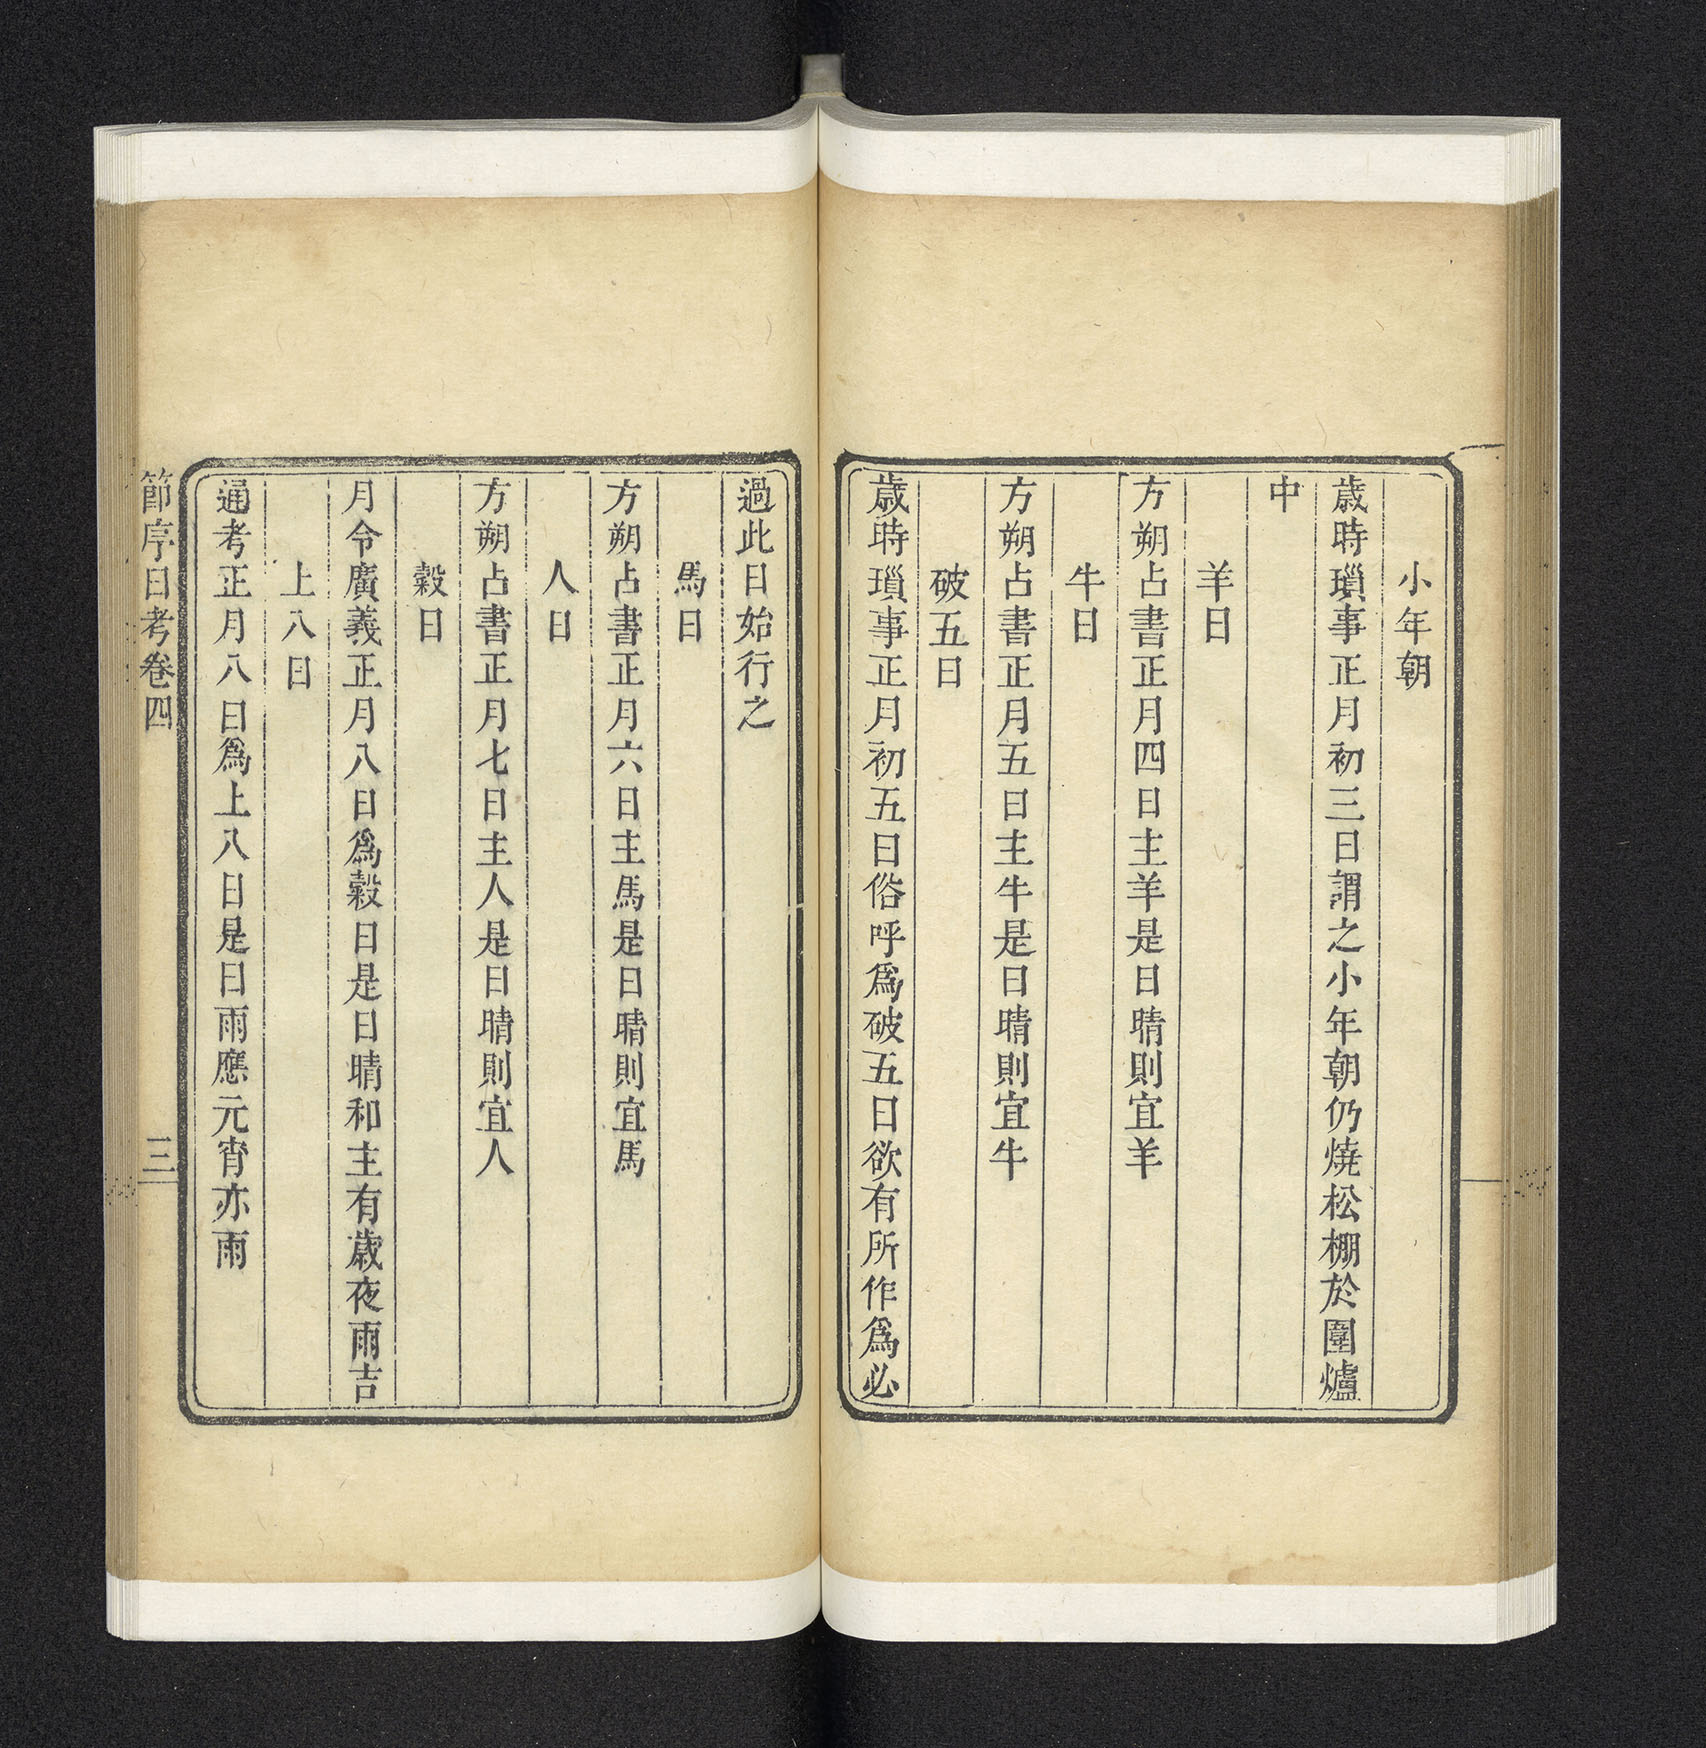 小年朝
歲時瑣事正月初三日謂之小年朝仍燒松棚於圍爐
中
羊日
方朔占書正月四日主羊是日晴則宜羊
牛日
方朔占書正月五日主牛是日晴則宜牛
破五日
歲時瑣事正月初五日俗呼爲破五日欲有所作爲必
過此日始行之
馬日
方朔占書正月六日主馬是日晴則宜馬
人日
方朔占書正月七日主人是日晴則宜人
糓日
月令廣義正月八日爲糓日是日晴和主有歲夜雨吉
上八日
通考正月八日爲上八日是日雨應元宵亦雨
節序日考卷四
三